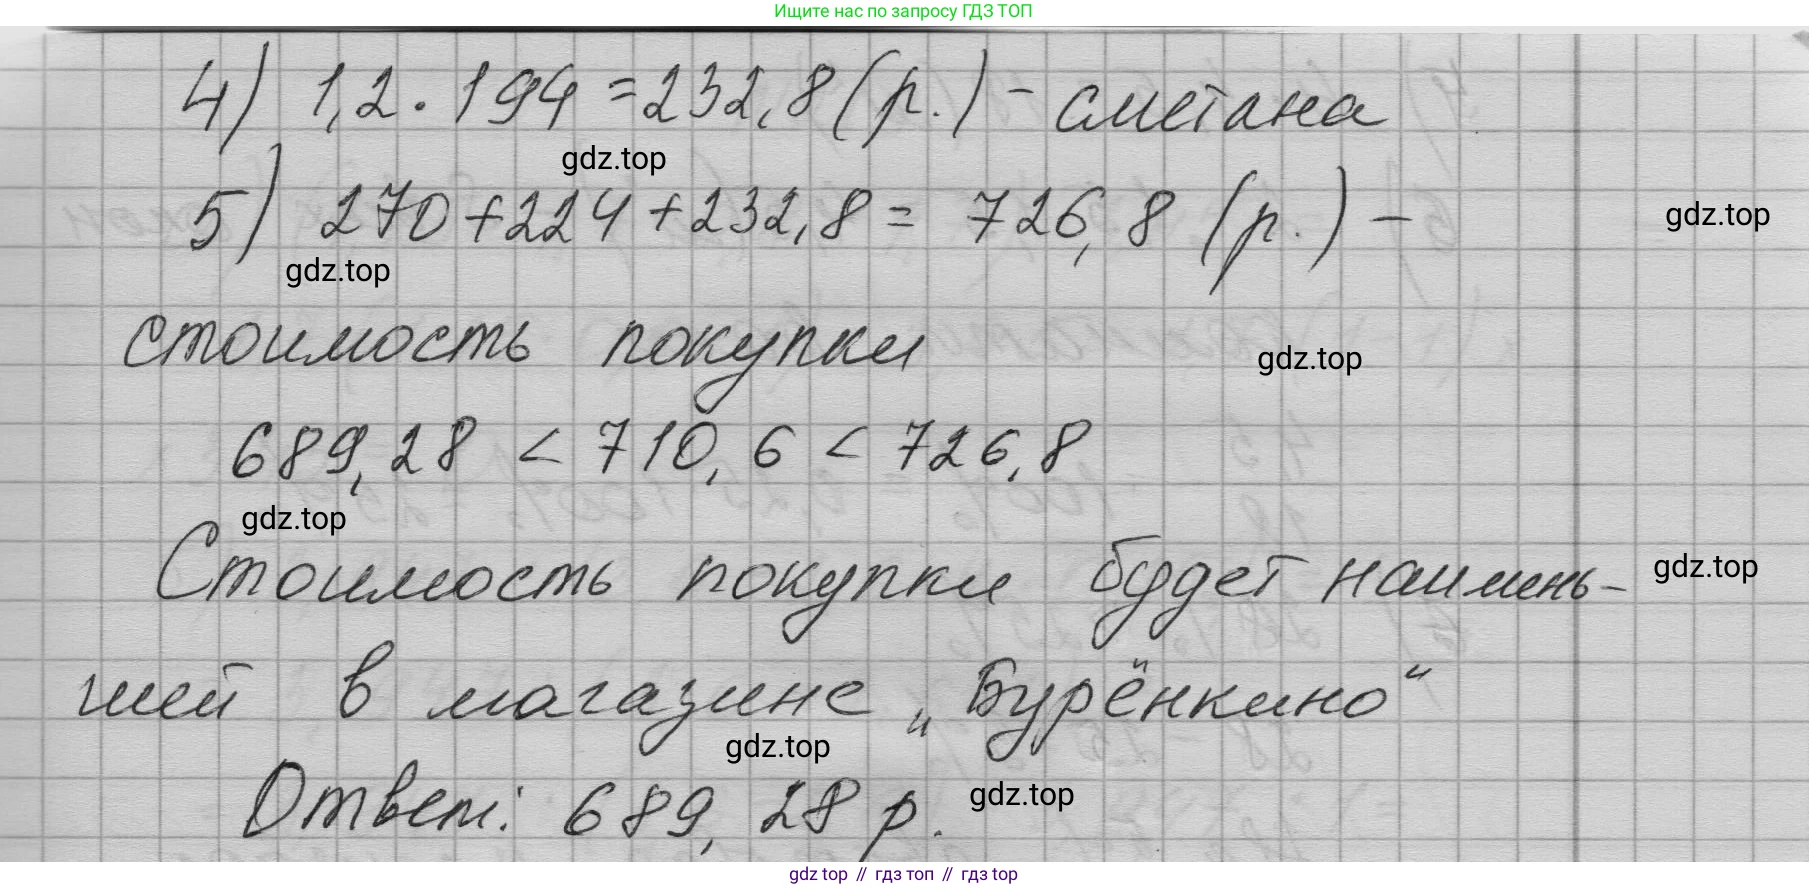 Ищите нас по запросу ГДЗ ТОП
4) 1,2 · 194 = 232,8 (р.) - сметана
gdz.top
5) 270 + 224 + 232,8 = 726,8 (р.) -
gdz.top
gdz.top
стоимость покупки
gdz.top
689,28 < 710,6 < 726,8
gdz.top
Стоимость покупки будет наимень-
gdz.top
шей в магазине „Бурёнкино“
gdz.top
Ответ: 689,28 р.
gdz.top
gdz top // гдз топ // гдз top